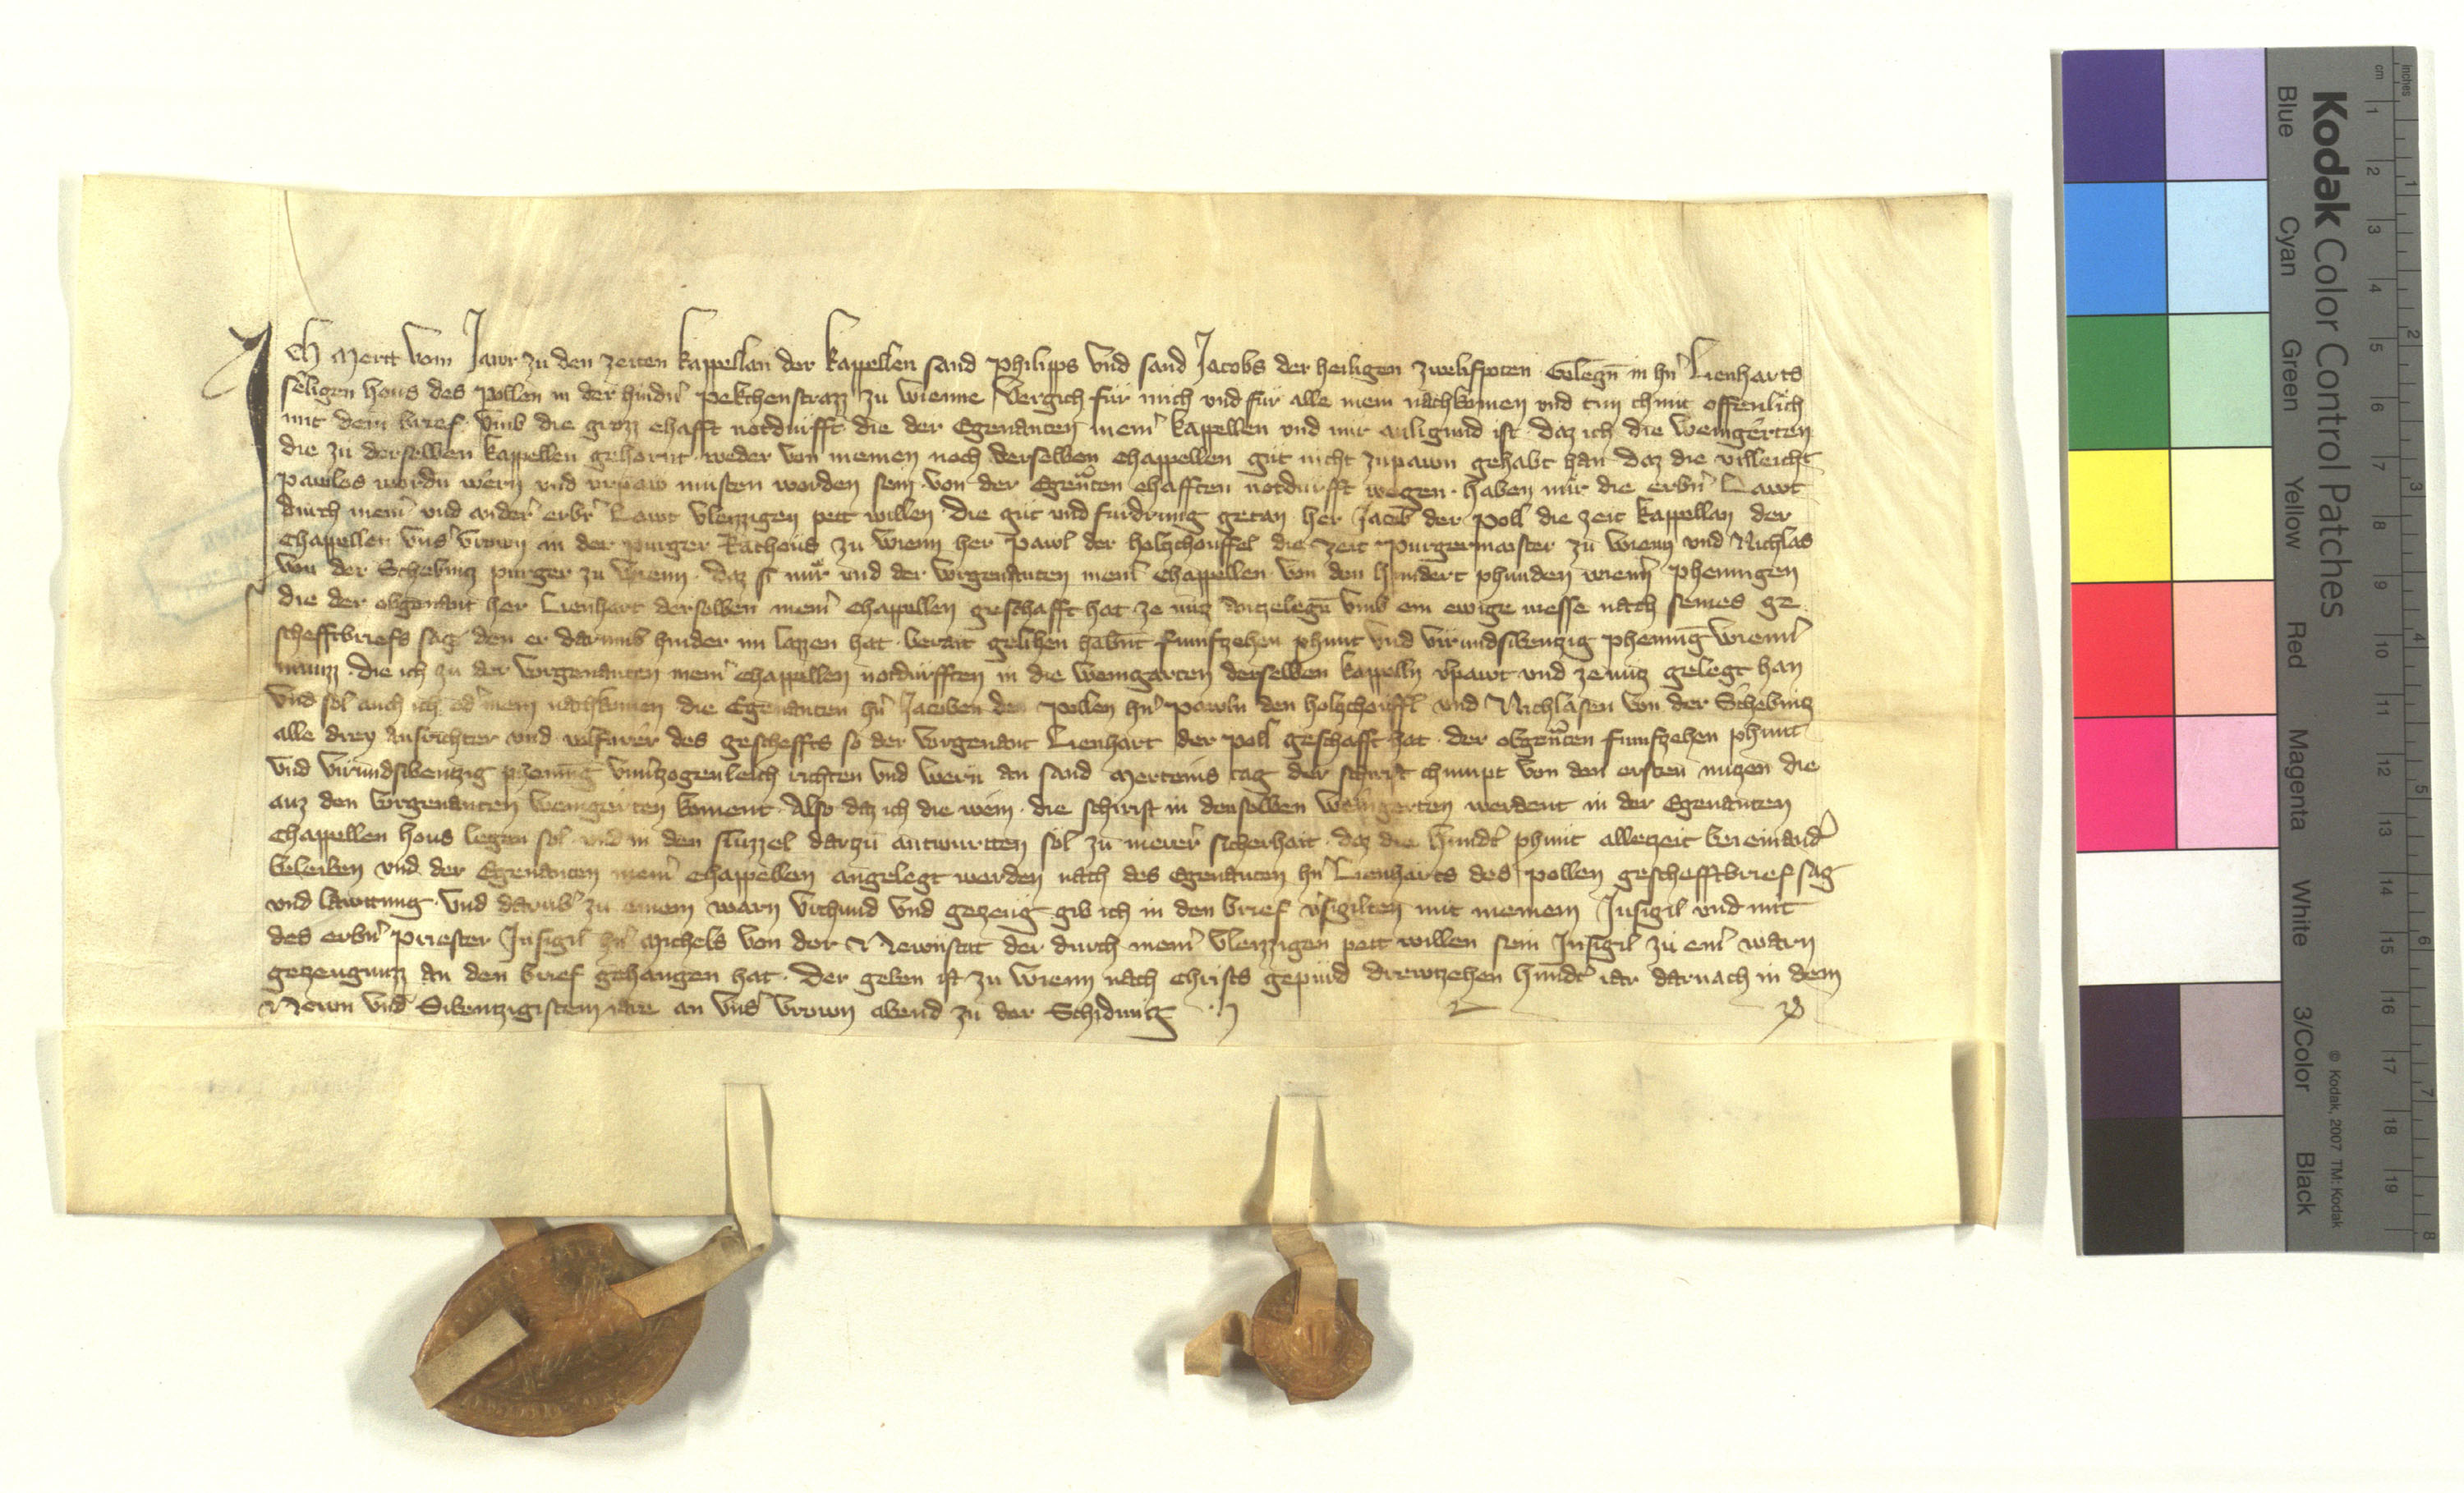 Ich Mertt vom Jawr zu den zeiten kappellan der kappellen sand Philipps vnd sand Jacobs der heiligen zwelifpoten Gelegn̄ in hn̄ Lienharts
sêligen hous des Pollen in der hindn̄ Pekchenstrazz zu Wienne Vergich für mich vnd für alle mein nachkomen vnd tun chunt offenlich
mit dem brief · Vmb die grozz ehafft notdurfft die der Egenanten meinr̄ kappellen vnd mir anligund ist · daz ich die weingêrten
die zu derselben kappellen gehornt · weder von meinem noch derselben chappellen gut nicht zupawn gehabt han daz die villeicht
pawlos wordn̄ wêrn vnd vrpaw musten worden sein · von der Egen̄ten ehafften notdurfft wegen · haben mir die erbn̄ Lawt
durch meinr̄ vnd anderr̄ erbr̄ Lewt vleizzigen pett willen die gut vnd fürdrung getan her Jacob der Poll die zeit kappellan der
Chappellen vnsr̄ vrown in der purger Rathous zu Wienn her Pawl der holczchouffel die zeit Purgermaister zu Wienn vnd Nichlas
von der Schebnicz purger zu Wienn · daz si mir vnd der vorgenanten meinr̄ Chappellen · von den hundert phunden wienn̄ phenningen
die der obgenant her Lienhart derselben meinr̄ chappellen geschafft hat ze nucz anzelegn̄ vmb ein ewige messe nach seines ge
schefftbriefs sag den er darumb hinder im lazzen hat · berait gelihen habnt fumfzehen phunt vnd virundsibenzig phenning wienn̄
munzz · die ich zu der vorgenanten meinr̄ chappellen notdürfften in die weingarten derselben kappelln v̄pawt vnd ze nucz gelegt han
Vnd sol auch ich od̄ mein nachkomen die Egenanten hn̄ Jacoben den Pollen hn̄ Pawln den holczchouffl vnd Nichlasen von der Schebnicz
alle drey ausrichter vnd volfürêr des gescheffts so der vorgenant Lienhart der Poll geschafft hat · der obgen̄ten fumfzehen phunt
vnd virundsibentzig phenning vnuerzogenleich richten vnd wern an sand Mertenis tag der schirist chumpt von den ersten nuczen die
auz den vorgenanten weingêrten koment · Also daz ich die wein · die schirist in denselben weingerten werdent in der Egenanten
Chappellen hous legen sol · vnd in den sluzzel darzu antwurtten sol zu merer sicherhait · daz die hundt̄ phunt alletzeit bei einand̄
beleiben vnd der Egenanten meinr̄ chappellen angelegt werden nach des Egenanten hn̄ Lienharts des Pollen geschefftbrief sag
vnd lawttung · Vnd darub̄ zu einem warn vrchund vnd gezeug gib ich in den brief v̄sigilten mit meinem Insigil vnd mit
des erbn̄ priester Insigil hn̄ Michels von der Newnstat der durch meinr̄ vleizzigen pett willen sein Insigil zu einr̄ warn
getzeugnuzz an den brief gehangen hat · Der geben ist zu Wienn nach Christs gepurd drewtzehen hundt̄ iar darnach in dem
Newn vnd Sibentzigistem iare an vnsr̄ vrown abend zu der Schidung
Kodak Color Control Patches
Blue Cyan Green Yellow Red Magenta White 3/Color Black
© Kodak, 2007 TM: Kodak
inches 1 2 3 4 5 6 7 8
cm 1 2 3 4 5 6 7 8 9 10 11 12 13 14 15 16 17 18 19